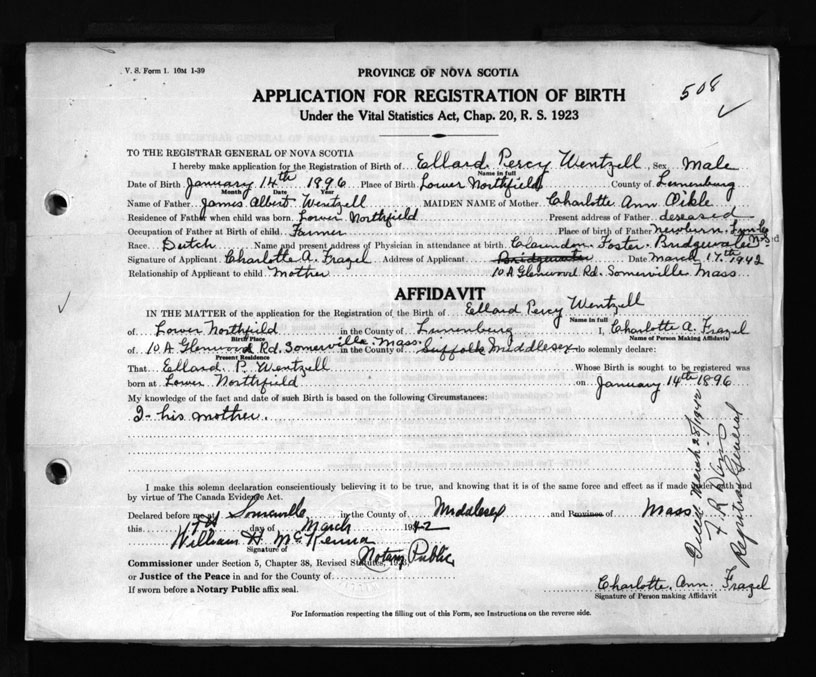 V. S. Form 1. 10M 1-39
PROVINCE OF NOVA SCOTIA
508
APPLICATION FOR REGISTRATION OF BIRTH
Under the Vital Statistics Act, Chap. 20, R. S. 1923
TO THE REGISTRAR GENERAL OF NOVA SCOTIA
I hereby make application for the Registration of Birth of Ellard Percy Wentzell Sex Male
Name in full
Date of Birth January 14th 1896 Place of Birth Lower Northfield County of Lunenburg
Month Date Year
Name of Father James Albert Wentzell MAIDEN NAME of Mother Charlotte Ann Pikle
Residence of Father when child was born Lower Northfield Present address of Father deseased
Occupation of Father at Birth of child Farmer Place of birth of Father Newburn Lun Co
Race Dutch Name and present address of Physician in attendance at birth Foster Bridgewater N.S.
Signature of Applicant Charlotte A. Frazel Address of Applicant Bridgewater Date March 17th 1942
Relationship of Applicant to child Mother 10 A Glenwood Rd. Somerville Mass
AFFIDAVIT
IN THE MATTER of the application for the Registration of the Birth of Ellard Percy Wentzell
Name in full
of Lower Northfield in the County of Lunenburg I, Charlotte A. Frazel
Birth Place Name of Person Making Affidavit
of 10 A Glenwood Rd. Somerville Mass. in the County of Suffolk Middlesex do solemnly declare:
Present Residence
That Ellard P. Wentzell Whose Birth is sought to be registered was
born at Lower Northfield on January 14th 1896
My knowledge of the fact and date of such Birth is based on the following Circumstances:
I - his mother.
I make this solemn declaration conscientiously believing it to be true, and knowing that it is of the same force and effect as if made under oath and
by virtue of The Canada Evidence Act.
Declared before me at Somerville in the County of Middlesex and Province of Mass
this 17th day of March 1942
William H. McKenna
Signature of
Notary Public
Commissioner under Section 5, Chapter 38, Revised Statutes, 1923,
or Justice of the Peace in and for the County of
If sworn before a Notary Public affix seal.
Charlotte Ann Frazel
Signature of Person making Affidavit
March 28/1942
Registrar General
For Information respecting the filling out of this Form, see Instructions on the reverse side.